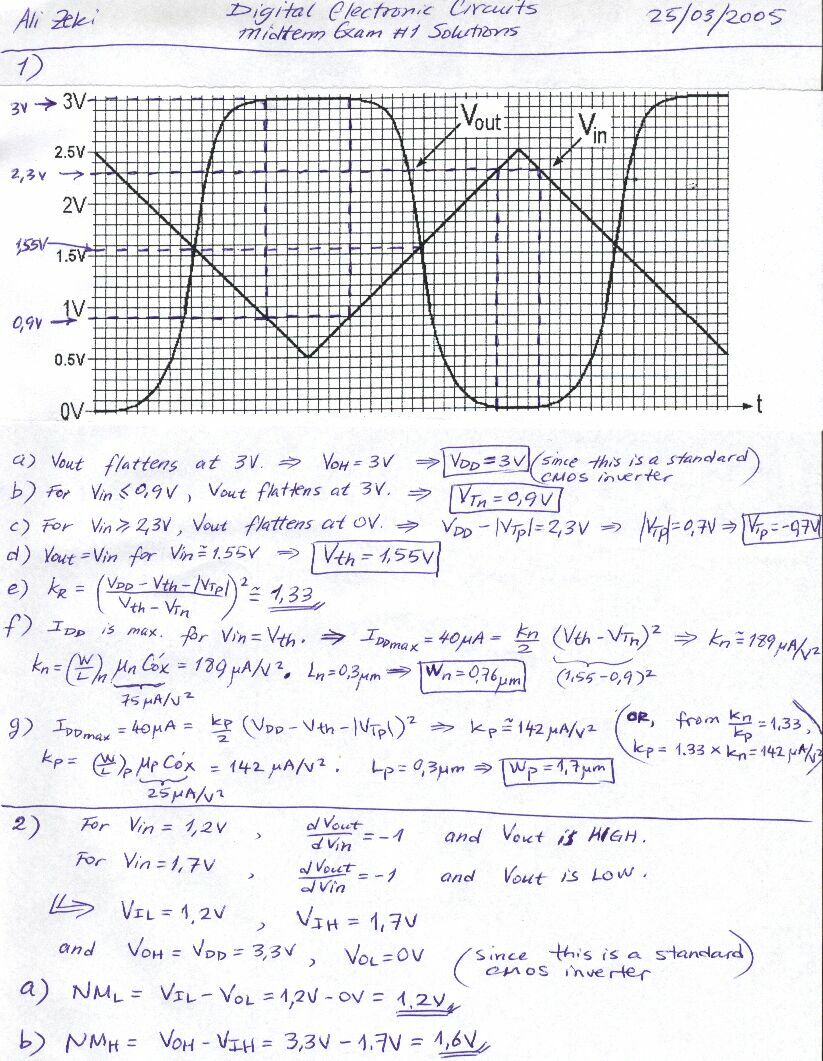 Ali Zeki Digital Electronic Circuits 25/03/2005
Midterm Exam #1 Solutions
1)
3V → 3V
Vout
Vin
2.5V
2,3V →
2V
1,55V →
1.5V
1V
0,9V →
0.5V
0V
t
a) Vout flattens at 3V. ⇒ VOH = 3V ⇒ VDD = 3V (since this is a standard CMOS inverter)
b) For Vin ≤ 0,9V, Vout flattens at 3V. ⇒ VTn = 0,9V
c) For Vin ≥ 2,3V, Vout flattens at 0V. ⇒ VDD - |VTp| = 2,3V ⇒ |VTp| = 0,7V ⇒ VTp = -0,7V
d) Vout = Vin for Vin ≅ 1.55V ⇒ Vth = 1,55V
e) kR = ((VDD - Vth - |VTp|)/(Vth - VTn))² ≅ 1,33
f) IDD is max. for Vin = Vth. ⇒ IDDmax = 40μA = kn/2 (Vth - VTn)² ⇒ kn ≅ 189μA/V²
(1,55 - 0,9)²
kn = (W/L)n μnCóx = 189μA/V². Ln = 0,3μm ⇒ Wn = 0,76μm
75μA/V²
g) IDDmax = 40μA = kp/2 (VDD - Vth - |VTp|)² ⇒ kp ≅ 142μA/V² (OR, from kn/kp = 1.33,
kp = 1.33 × kn = 142μA/V²)
kp = (W/L)p μpCóx = 142μA/V². Lp = 0,3μm ⇒ Wp = 1,7μm
25μA/V²
2) For Vin = 1,2V, dVout/dVin = -1 and Vout is HIGH.
For Vin = 1.7V, dVout/dVin = -1 and Vout is LOW.
⇒ VIL = 1,2V, VIH = 1,7V
and VOH = VDD = 3,3V, VOL = 0V (since this is a standard CMOS inverter)
a) NML = VIL - VOL = 1,2V - 0V = 1,2V
b) NMH = VOH - VIH = 3,3V - 1.7V = 1,6V